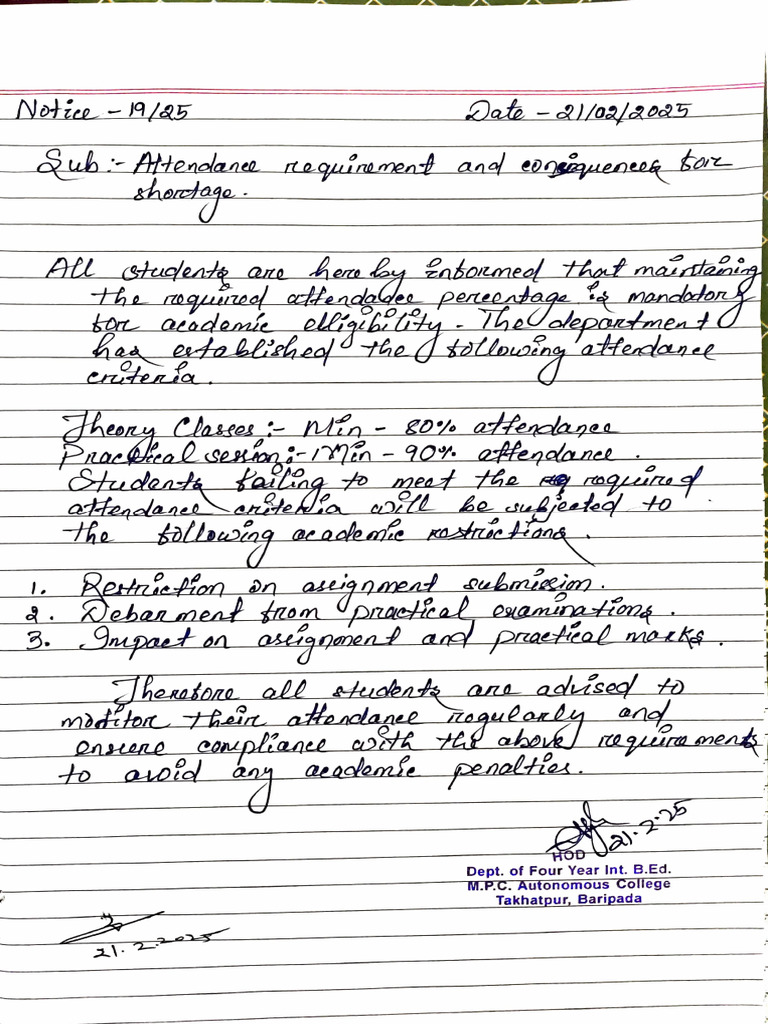 Notice - 19/25 Date - 21/02/2025
Sub :- Attendance requirement and consequences for
shortage.
All students are here by informed that maintaining
the required attendadee percentage is mandatory
for academic elligibility. The department
has established the following attendance
criteria.
Theory Classes :- Min - 80% attendance
Practical session :- Min - 90% attendance.
Students failing to meet the required
attendance criteria will be subjected to
the following academic restrictions.
1. Restriction on assignment submission.
2. Debarment from practical examinations.
3. Impact on assignment and practical marks.
Therefore all students are advised to
monitor their attendance regularly and
ensure compliance with the above requirements
to avoid any academic penalties.
21.2.25
HOD
Dept. of Four Year Int. B.Ed.
M.P.C. Autonomous College
Takhatpur, Baripada
21.2.2025